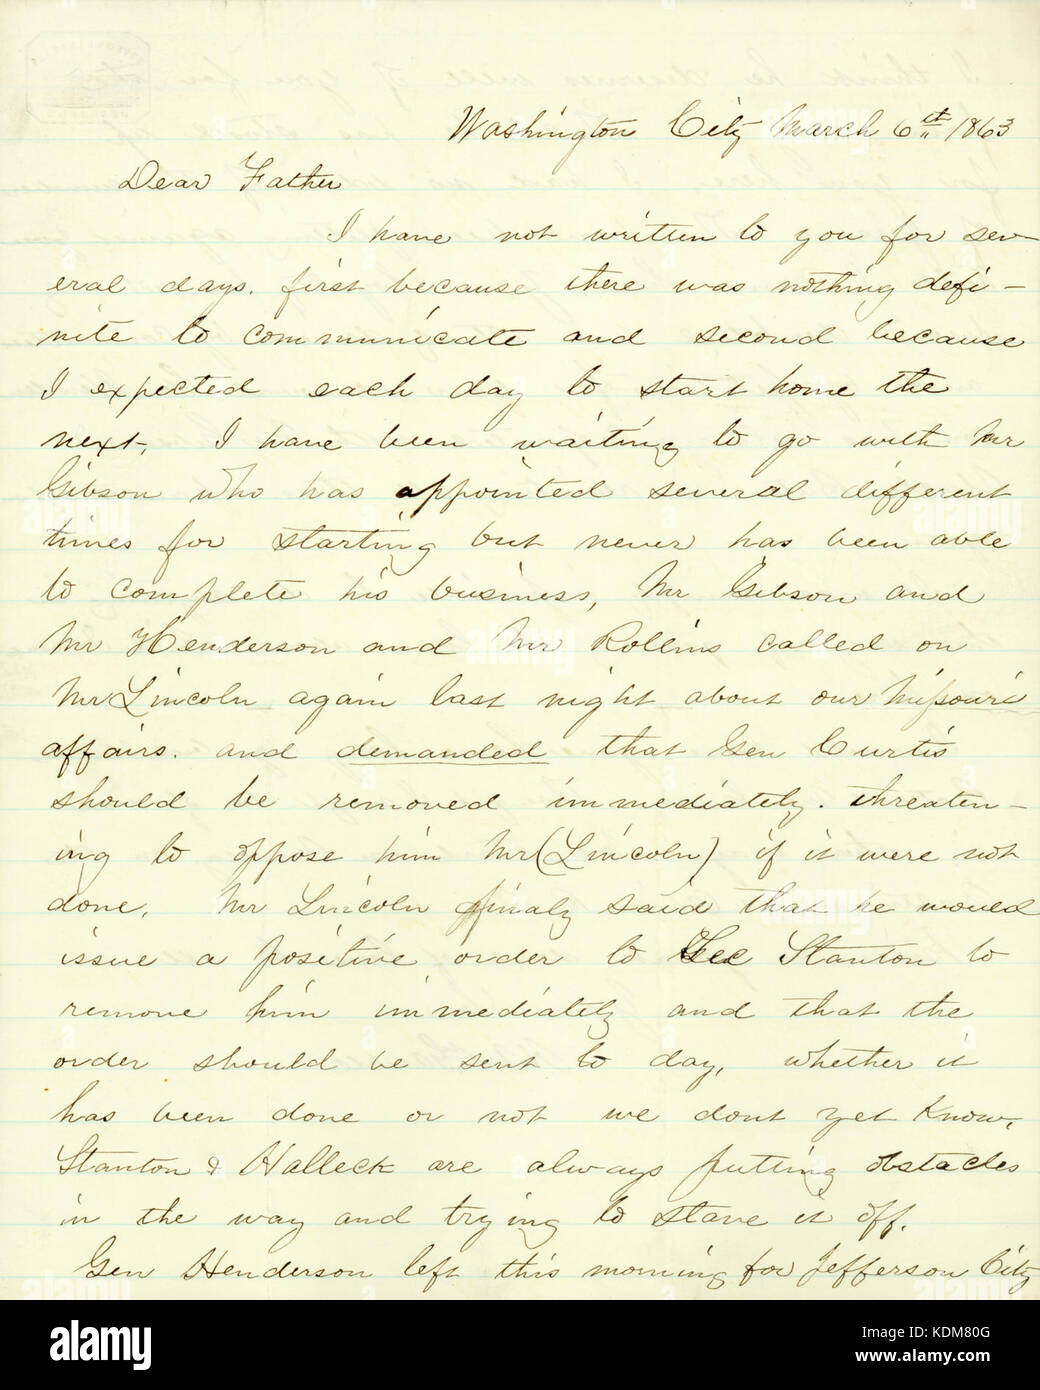 Washington City March 6th 1863
Dear Father
I have not written to you for sev-
eral days. first because there was nothing defi-
nite to communicate and second because
I expected each day to start home the
next, I have been waiting to go with Mr
Gibson who has appointed several different
times for starting but never has been able
to complete his business, Mr Gibson and
Mr Henderson and Mr Rollins called on
Mr Lincoln again last night about our Missouri
affairs. and demanded that Gen Curtis
should be removed immediately. threaten-
ing to oppose him Mr (Lincoln) if it were not
done, Mr Lincoln finaly said that he would
issue a positive order to Sec Stanton to
remove him immediately and that the
order should be sent to day, whether it
has been done or not we dont yet know,
Stanton & Halleck are always putting obstacles
in the way and trying to stave it off.
Gen Henderson left this morning for Jefferson City
alamy
Image ID: KDM80G
www.alamy.com